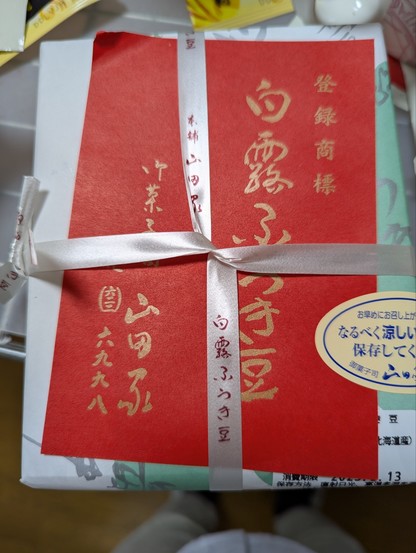 登録商標
白露ふうき豆
御菓子司
山田家
六九九八
本舗 山田家
白露ふうき豆
お早めにお召し上が
なるべく涼しい
保存してく
御菓子司
き 豆
北海道産)
消費期限
13